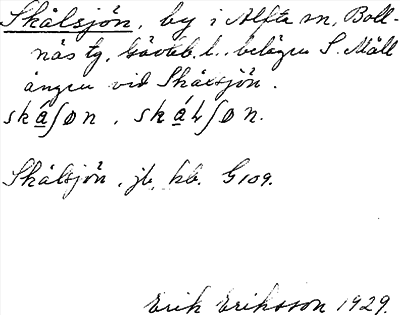 Skålsjön, by i Alfta sn, Boll-
näs tg, Gävleb. l., belägen S. Mäll
ångен vid Skålsjön.
skáʃøn, skálʃøn.
Skålsjön, jb, kb. G109.
Erik Eriksson 1929.